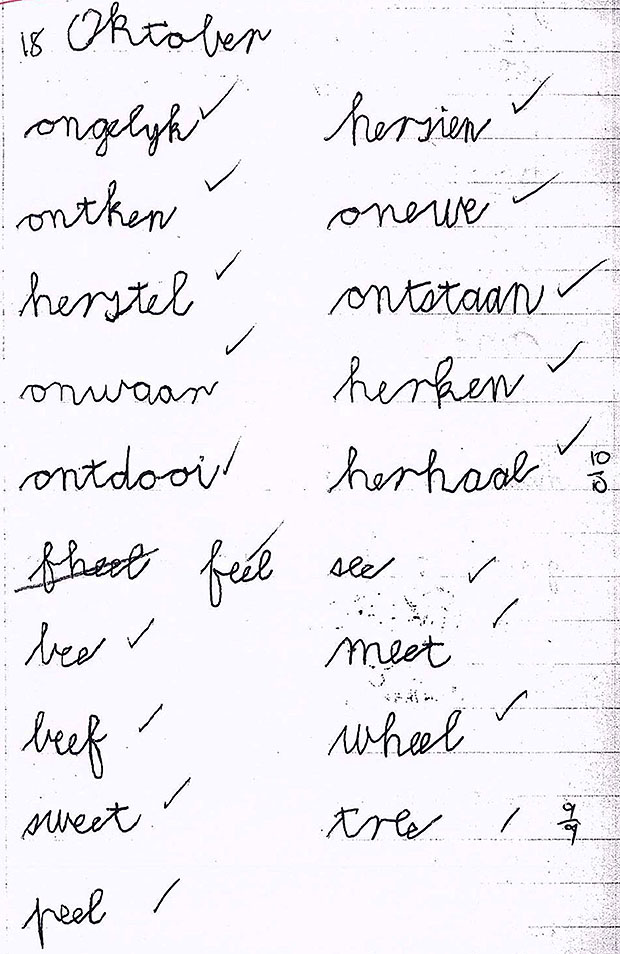 18 Oktober
ongelyk hersien
ontken onewe
herstel ontstaan
onwaar herken
ontdooi herhaal 10/10
fheel feel see
bee meet
beef wheel
sweet tree 9/9
peel